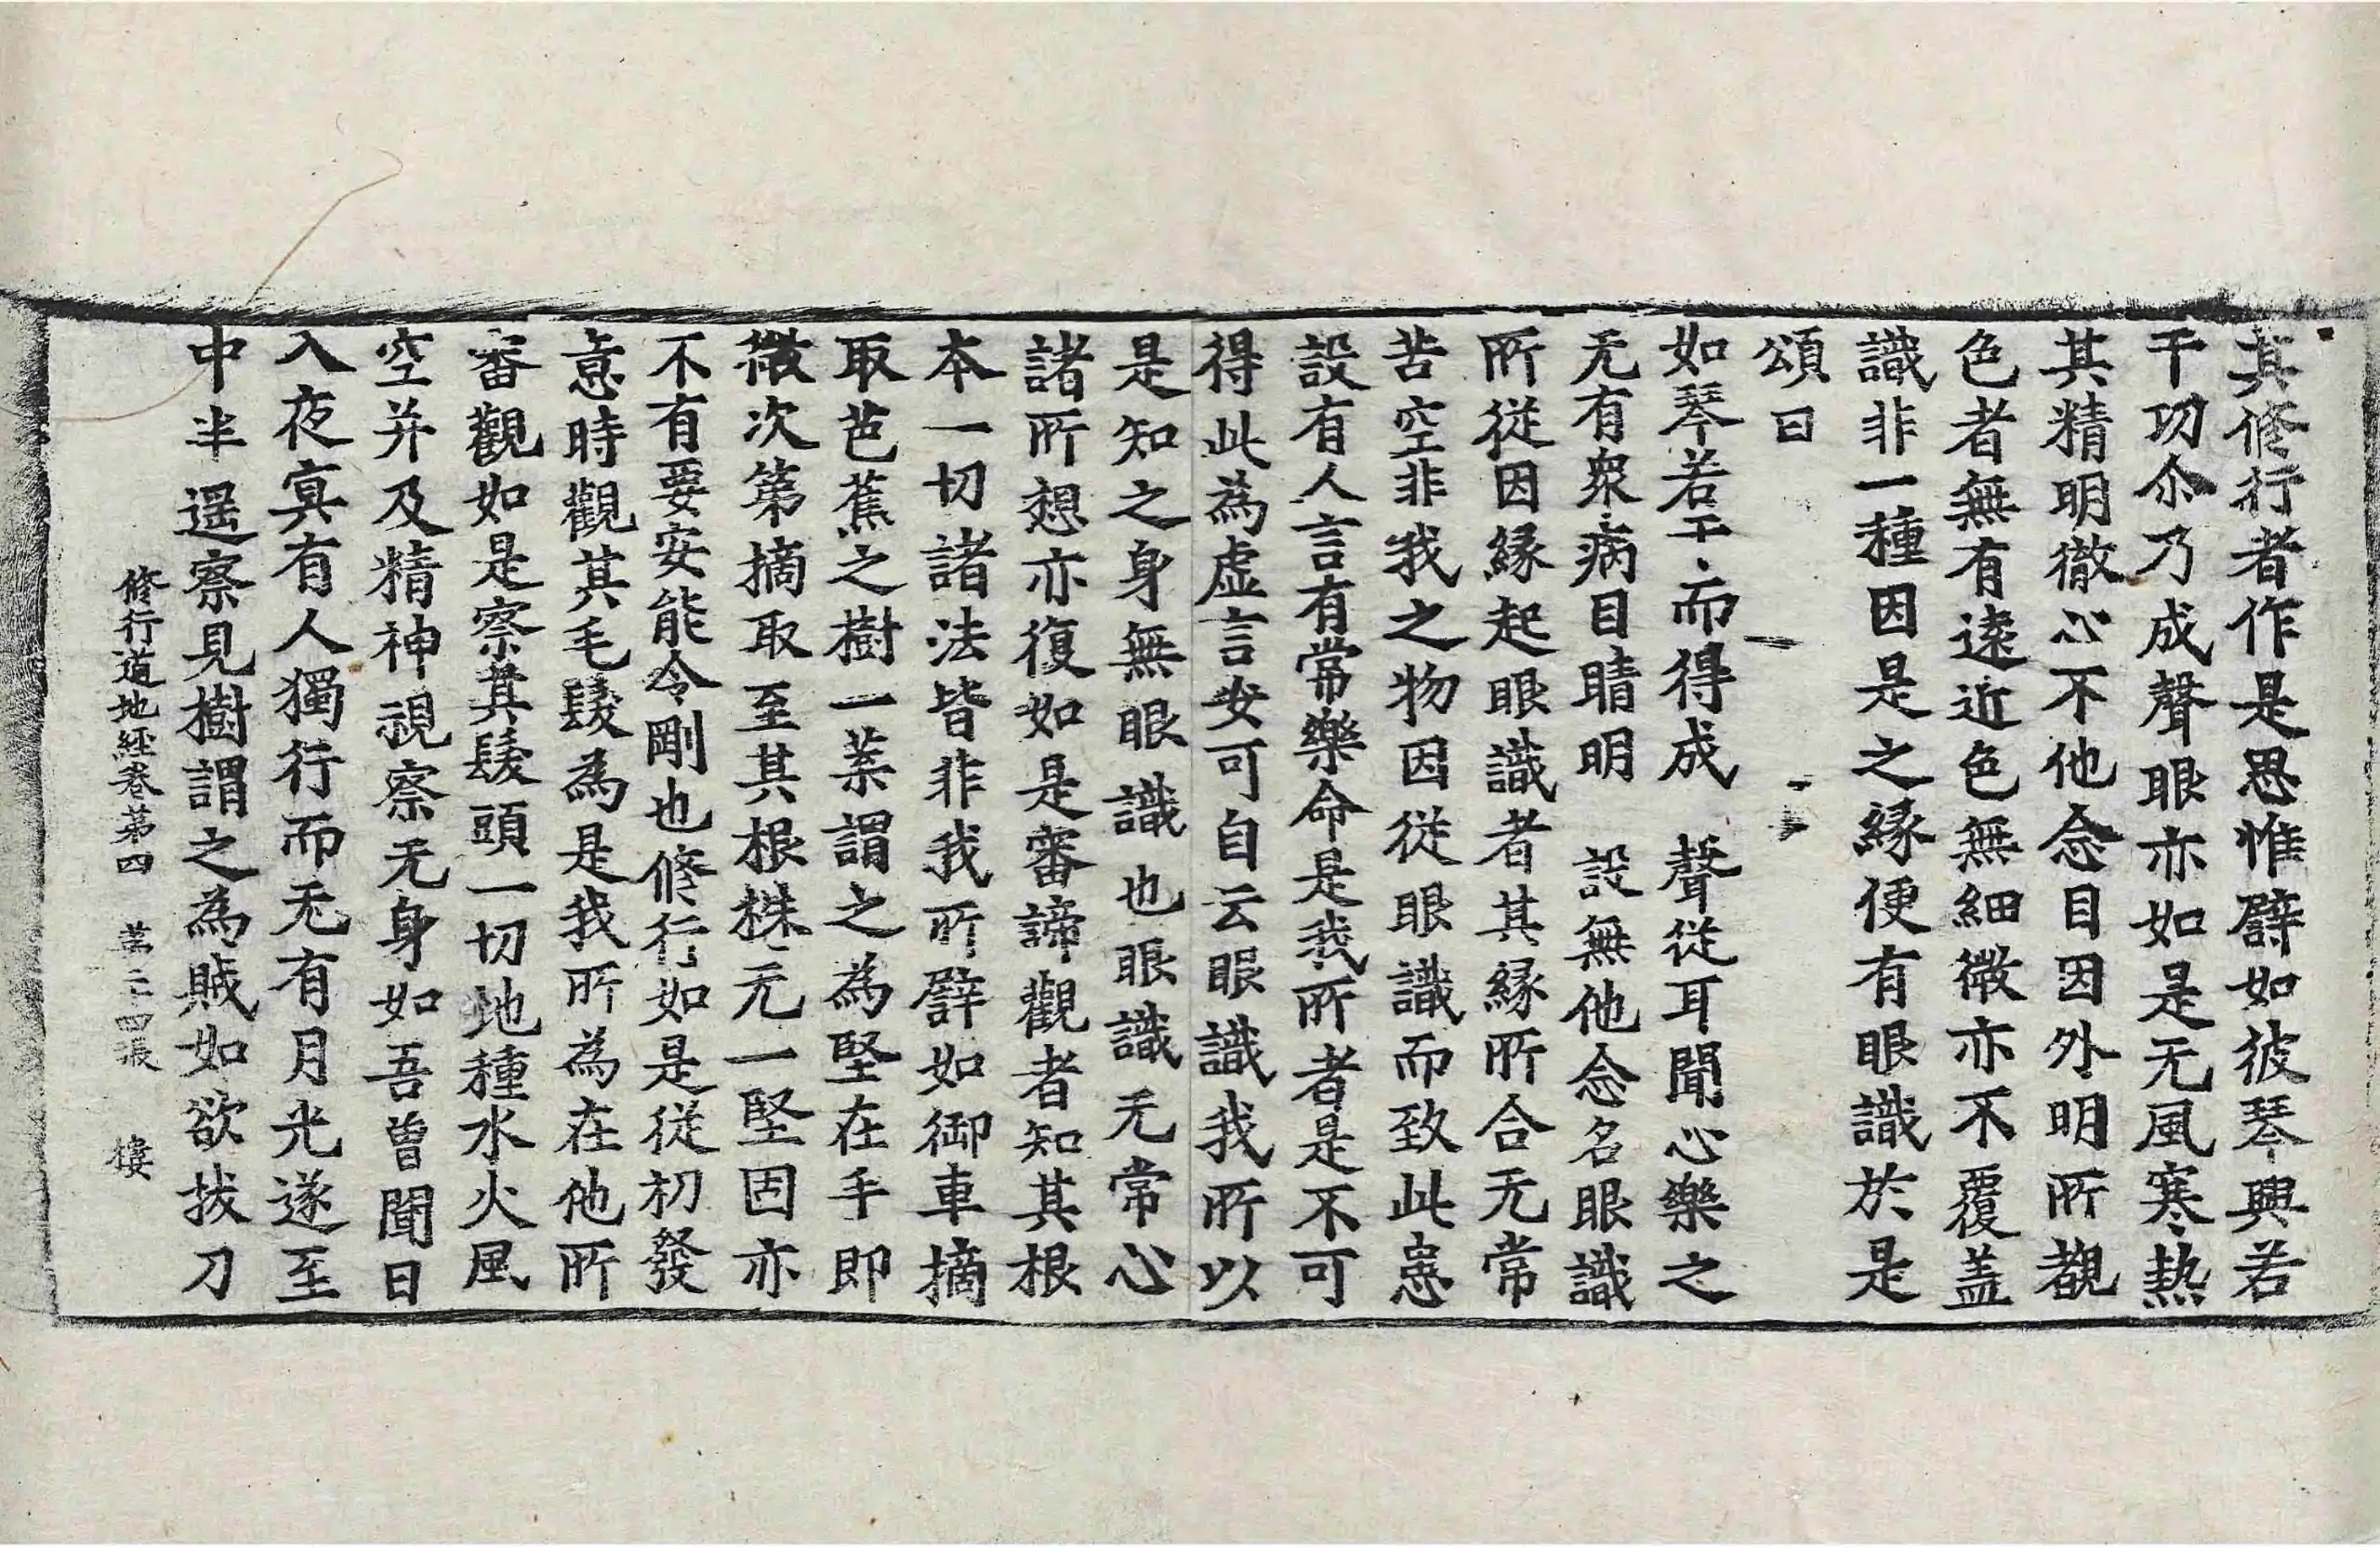 其修行者作是思惟譬如彼琴興若
干功尒乃成聲眼亦如是无風寒熱
其精明徹心不他念目因外明所覩
色者無有逺近色無細微亦不覆盖
識非一種因是之縁便有眼識於是
頌曰
如琴若干而得成　聲從耳聞心樂之
无有衆病目睛明　設無他念名眼識
所從因縁起眼識者其縁所合无常
苦空非我之物因從眼識而致此患
設有人言有常樂命是我所者是不可
得此為虛言安可自云眼識我所以
是知之身無眼識也眼識无常心
諸所想亦復如是審諦觀者知其根
本一切諸法皆非我所譬如御車摘
取芭蕉之樹一葉謂之為堅在手即
微次第摘取至其根株无一堅固亦
不有要安能令剛也修行如是從初發
意時觀其毛髮為是我所為在他所
審觀如是察其髮頭一切地種水火風
空并及精神視察无身如吾曾聞日
入夜冥有人獨行而无有月光遂至
中半遥察見樹謂之為賊如欲拔刀
修行道地經卷苐四　苐二十四張　樓